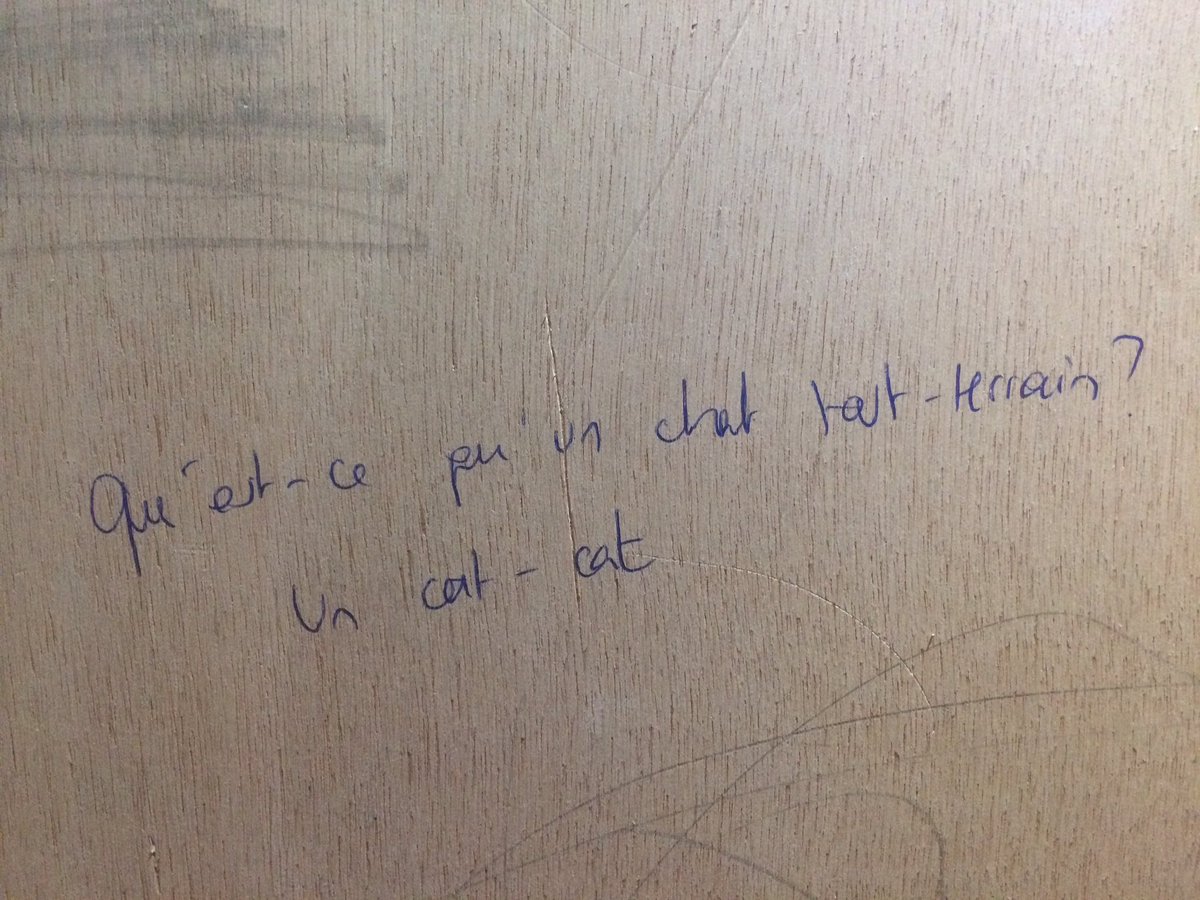 Qu'est-ce qu'un chat tout-terrain?
Un cat-cat